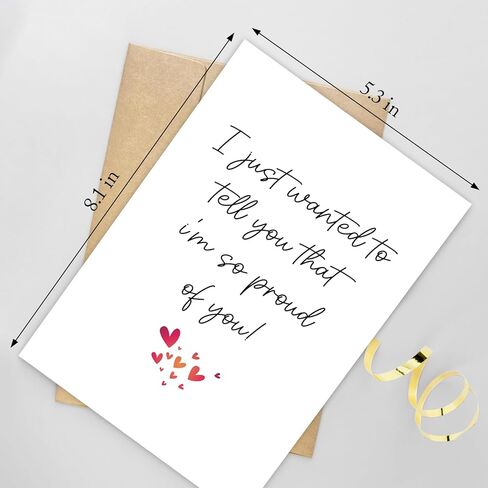 5.3 in
8.1 in
I just wanted to
tell you that
i'm so proud
of you!